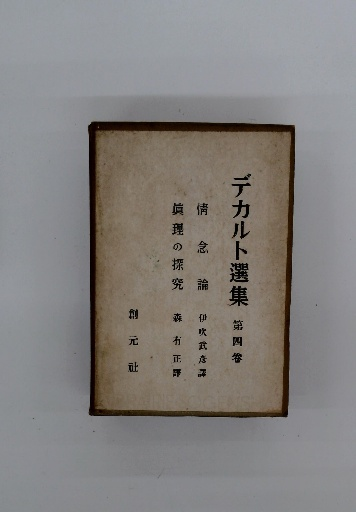 デカルト選集 第四卷
情念論 伊吹武彦譯
眞理の探究 森有正譯
創元社